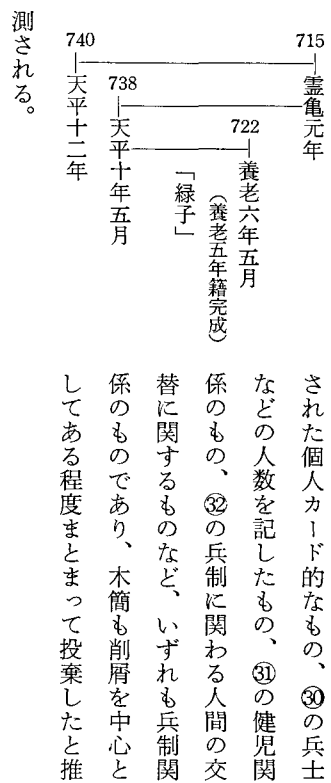 された個人カード的なもの、㉚の兵士
などの人数を記したもの、㉛の健児関
係のもの、㉜の兵制に関わる人間の交
替に関するものなど、いずれも兵制関
係のものであり、木簡も削屑を中心と
してある程度まとまって投棄したと推
715
霊亀元年
722
養老六年五月
（養老五年籍完成）
「緑子」
738
天平十年五月
740
天平十二年
測される。